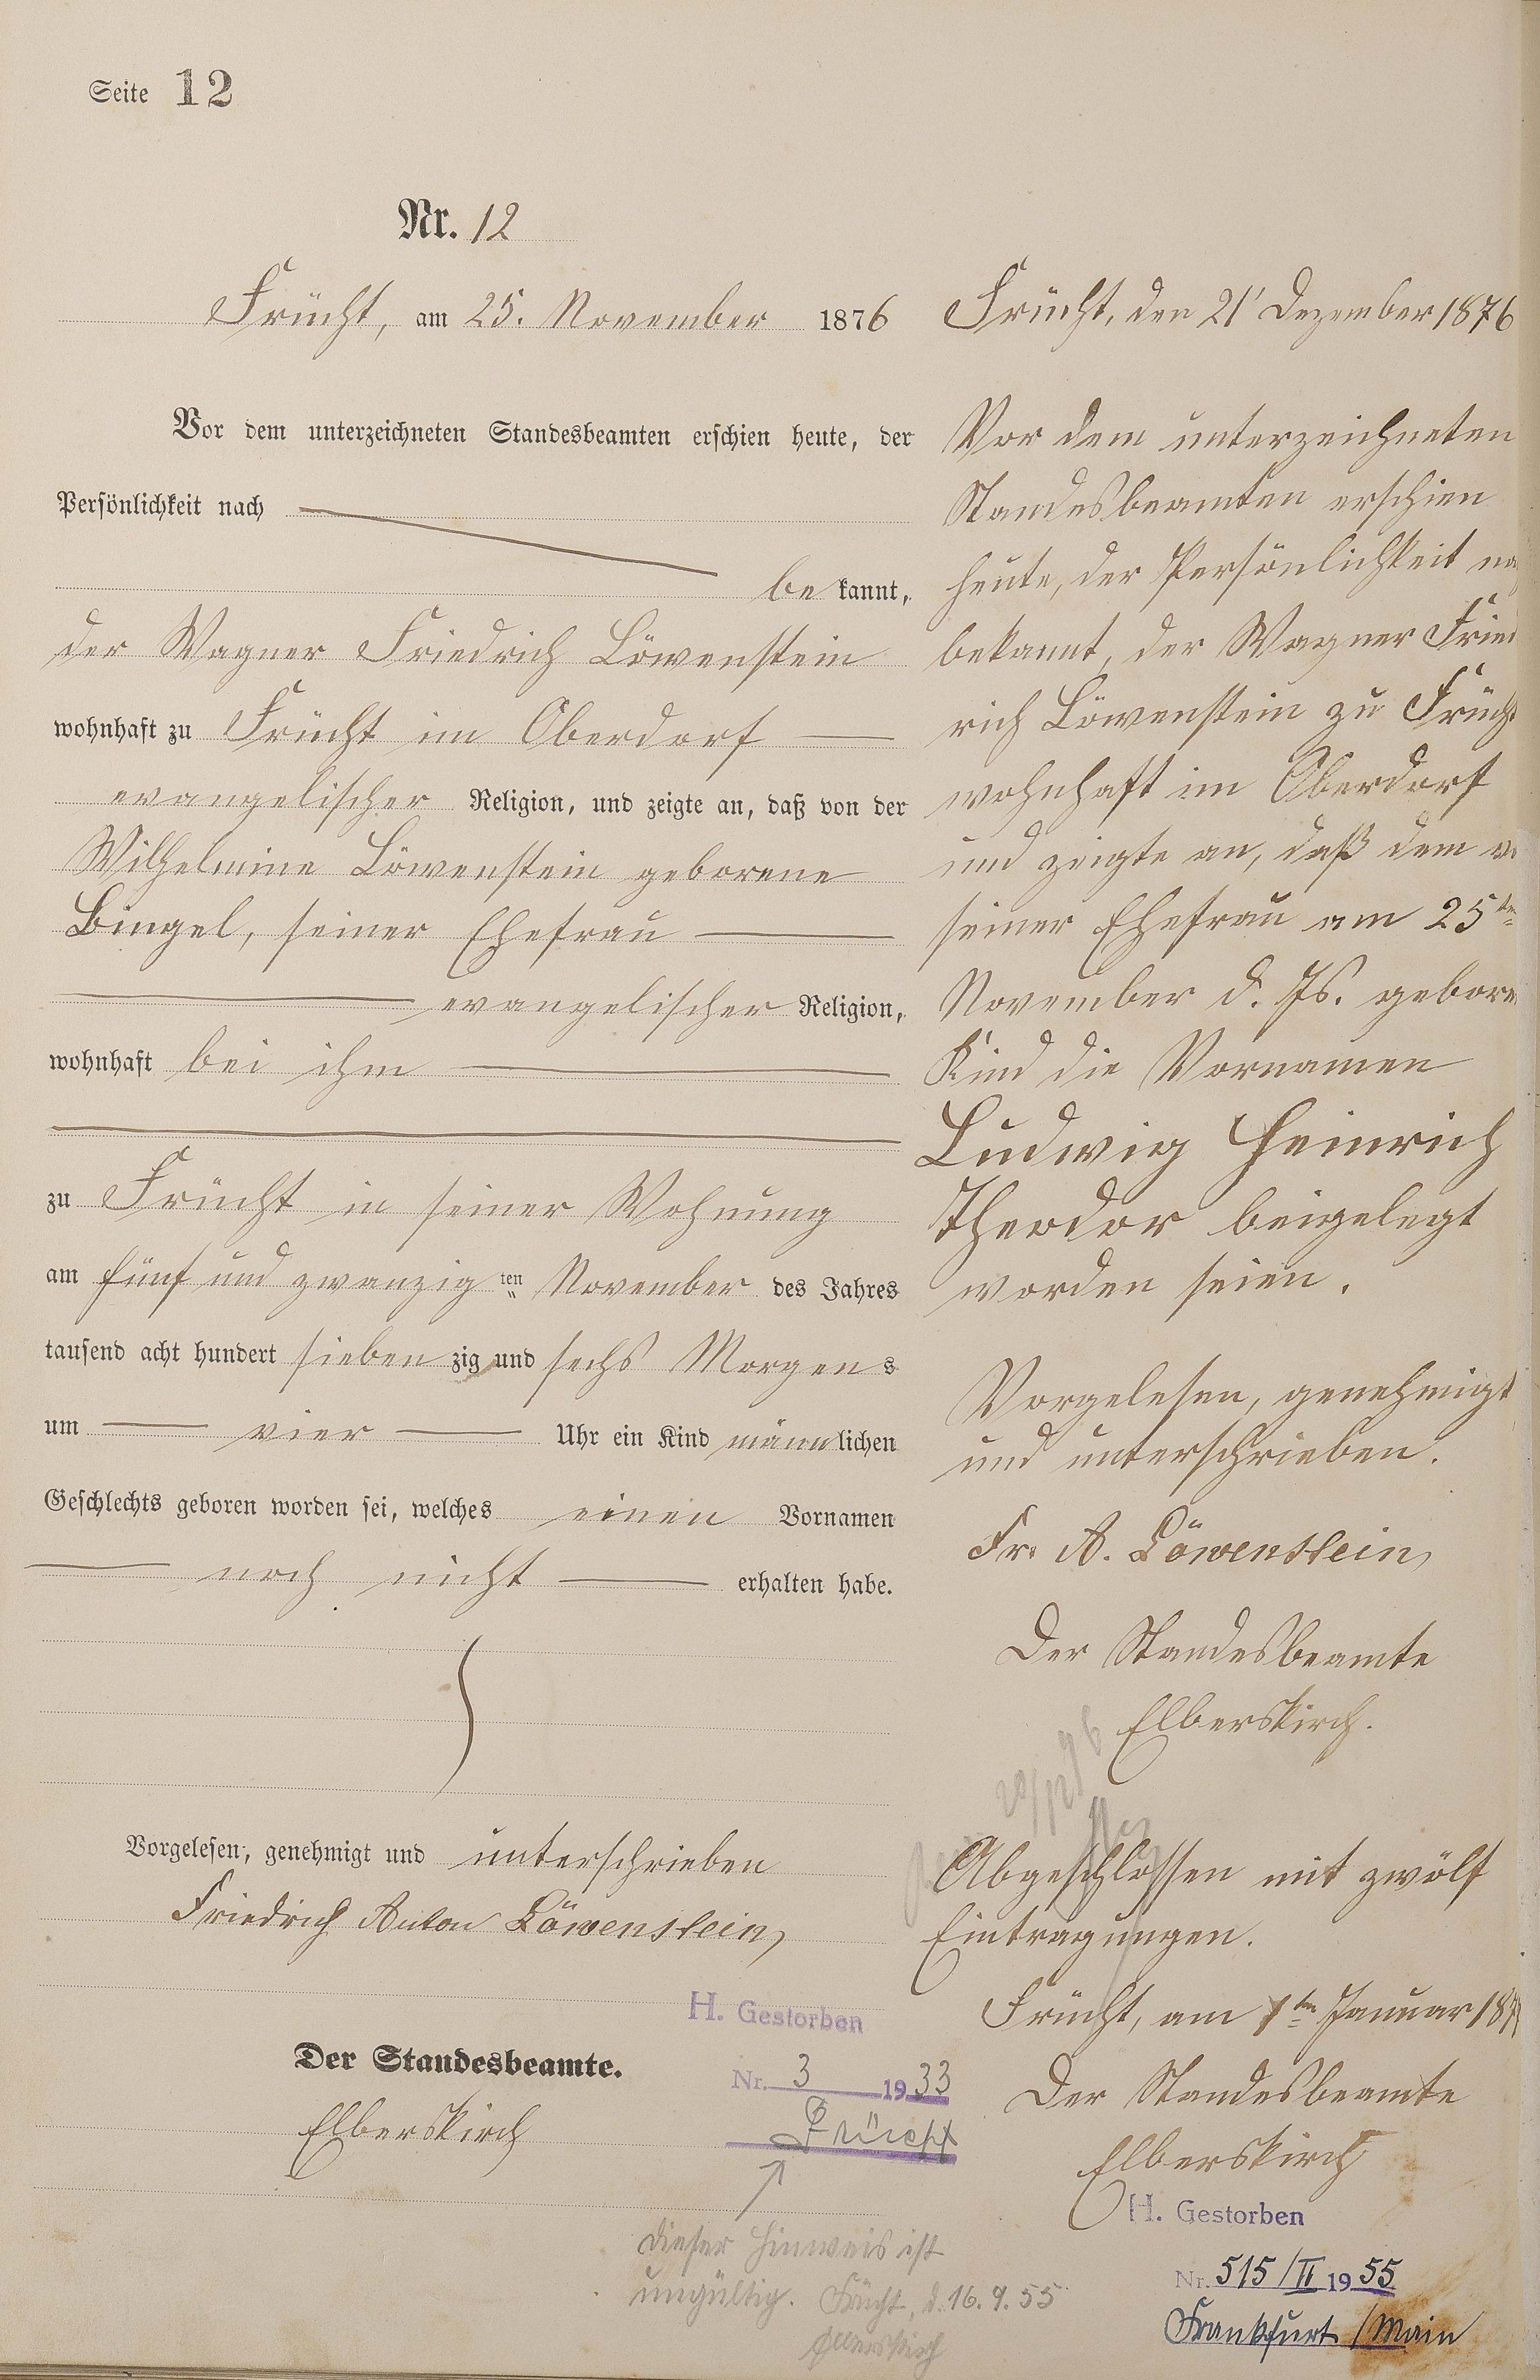 Seite 12
Nr. 12
Frücht, am 25. November 1876
Vor dem unterzeichneten Standesbeamten erschien heute, der
Persönlichkeit nach
be kannt,
der Wagner Friedrich Löwenstein
wohnhaft zu Frücht im Oberdorf
evangelischer Religion, und zeigte an, daß von der
Wilhelmine Löwenstein geborene
Bingel, seiner Ehefrau
evangelischer Religion,
wohnhaft bei ihm
zu Frücht in seiner Wohnung
am fünf und zwanzig ten November des Jahres
tausend acht hundert sieben zig und sechs Morgens
um vier Uhr ein Kind männlichen
Geschlechts geboren worden sei, welches einen Vornamen
noch nicht erhalten habe.
Vorgelesen, genehmigt und unterschrieben
Friedrich Anton Löwenstein
Der Standesbeamte.
Elberskirch
H. Gestorben
Nr. 3 1933
Frücht
dieser Hinweis ist
ungültig. Frücht, d. 16. 9. 55
Elberskirch
Frücht, den 21' Dezember 1876
Vor dem unterzeichneten
Standesbeamten erschien
heute, der Persönlichkeit na
bekannt, der Wagner Fried
rich Löwenstein zu Frücht
wohnhaft im Oberdorf
und zeigte an, daß dem vo
seiner Ehefrau am 25ten
November d. Js. gebore
Kind die Vornamen
Ludwig Heinrich
Theodor beigelegt
worden seien.
Vorgelesen, genehmigt
und unterschrieben.
Fr. A. Löwenstein
Der Standesbeamte
Elberskirch.
20/12 76
Abgeschlossen mit zwölf
Eintragungen.
Frücht, am 1ten Januar 187
Der Standesbeamte
Elberskirch
H. Gestorben
Nr. 515/II 1955
Frankfurt/Main